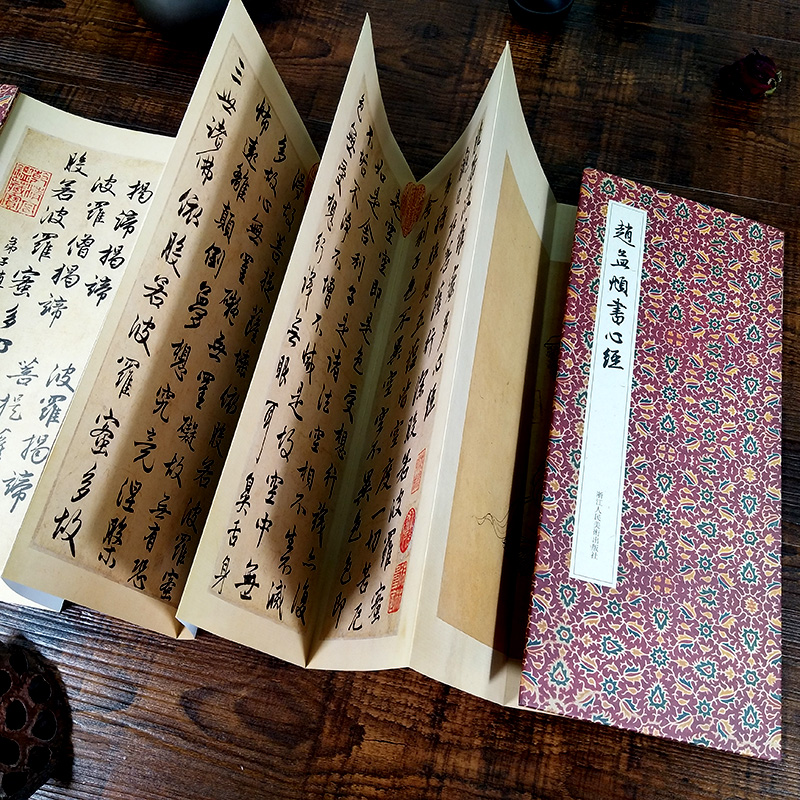 趙孟頫書心經
浙江人民美術出版社
蜜多心經
行深般若波羅蜜
五蘊皆空度一切苦厄
舍利子色不異空空不異色色即
是空空即是色受想行識亦復
如是舍利子是諸法空相不生滅
不垢不淨不增不減是故空中無
色無受想行識無眼耳鼻舌身
得故菩提薩埵依般若波羅蜜
多故心無罣礙無罣礙故無有恐
怖遠離顛倒夢想究竟涅槃
三世諸佛依般若波羅蜜多故
揭諦揭諦 波羅揭諦
波羅僧揭諦 菩提薩
般若波羅蜜多
弟子趙